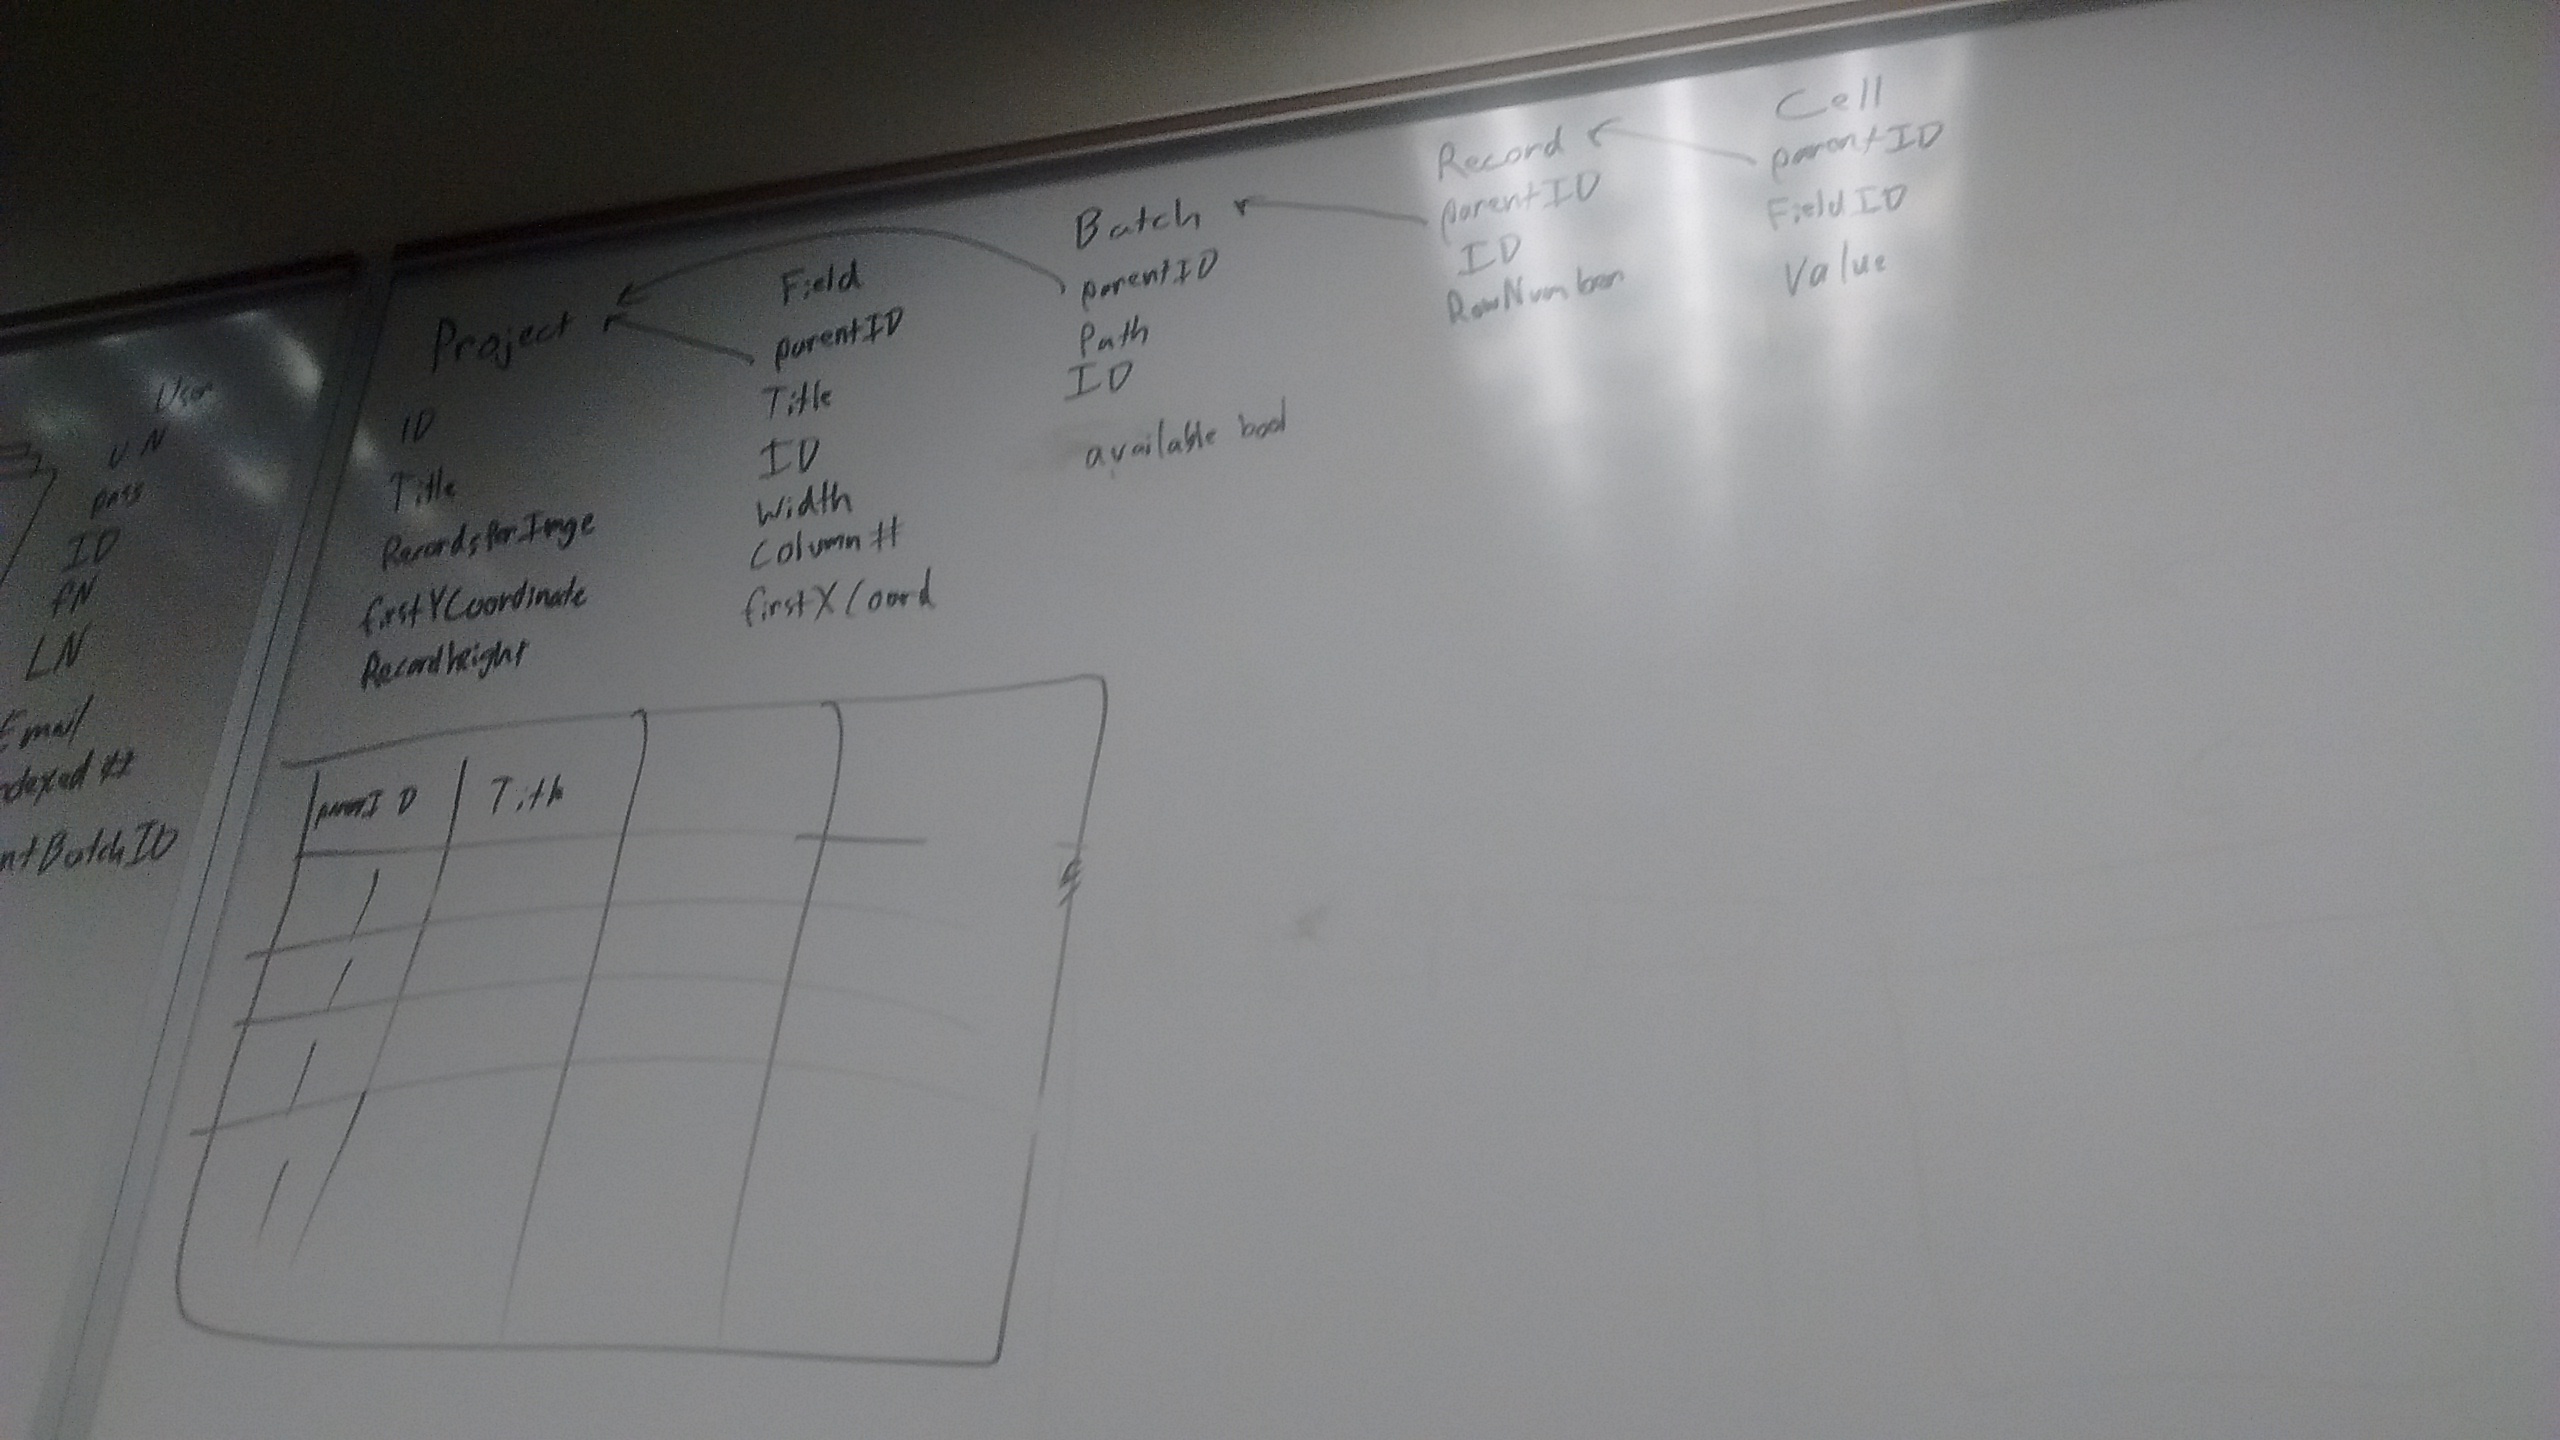 User
UN
pass
ID
FN
LN
Email
ndexed #
ntBatchID
Project
ID
Title
RecordsPerImge
firstYCoordinate
Recordheight
Field
parentID
Title
ID
Width
Column #
firstXCoord
Batch
parentID
Path
ID
available bool
Record
parentID
ID
RowNumber
Cell
parentID
FieldID
Value
parentID
Title